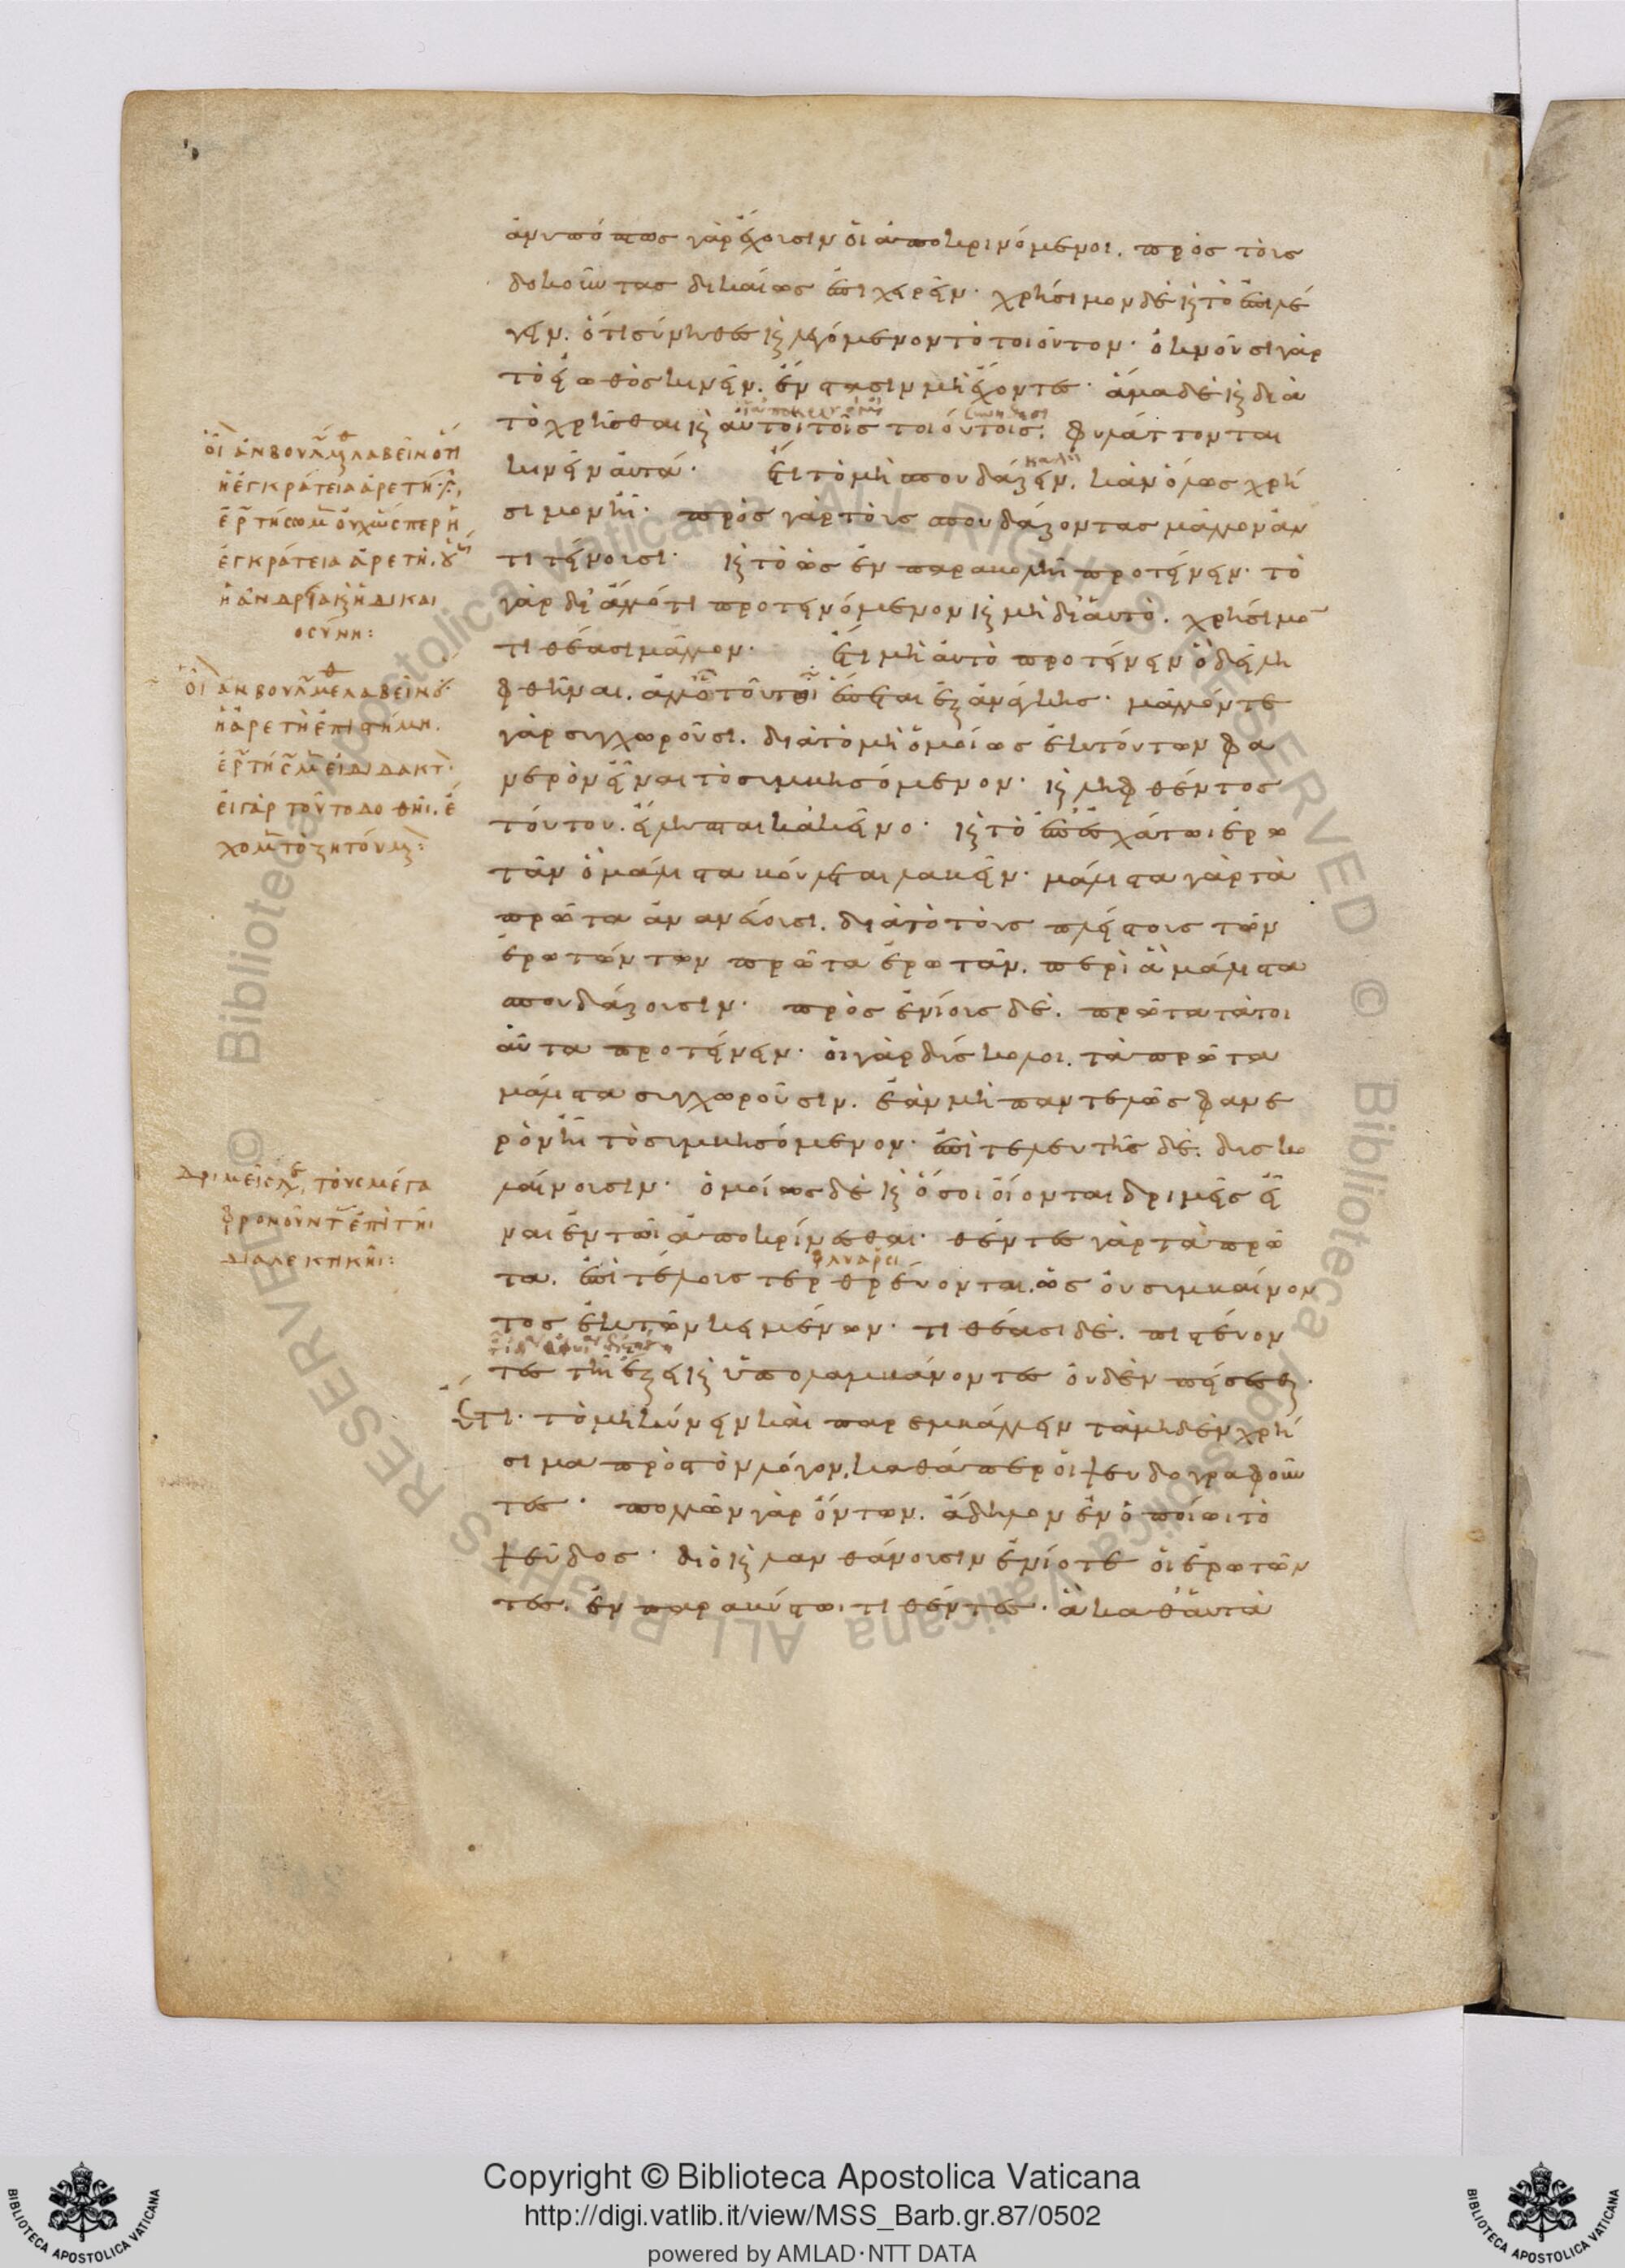 ἀνυπόπτως γὰρ ἔχουσιν οἱ ἀποκρινόμενοι. πρὸς τοὺς
δοκοῦντας δικαίως ἐπιχειρεῖν· χρήσιμον δὲ καὶ τὸ ἐπιλέ
γειν. ὅτι σύνηθες καὶ λεγόμενον τὸ τοιοῦτον· ὀκνοῦσι γὰρ
τὸ εἰωθὸς κινεῖν. ἔνστασιν μὴ ἔχοντες· ἅμα δὲ καὶ διὰ
τὸ χρῆσθαι καὶ αὐτοὶ τοῖς τοιούτοις. φυλάττονται
κινεῖν αὐτά· ἔτι τὸ μὴ σπουδάζειν. κἂν ὅλως χρή
σιμον ἦι· πρὸς γὰρ τοὺς σπουδάζοντας μᾶλλον ἀν
τιτείνουσι· καὶ τὸ ὡς ἐν παραβολῆι προτείνειν· τὸ
γὰρ δι' ἄλλό τι προτεινόμενον καὶ μὴ δι' αὑτὸ. χρήσιμο̅
τιθέασι μᾶλλον· ἔτι μὴ αὐτὸ προτείνειν ὃ δεῖ λη
φθῆναι. ἀλλ' ὧ τοῦτο ἕπεται ἐξ ἀνάγκης· μᾶλλόν τε
γὰρ συγχωροῦσι. διὰ τὸ μὴ ὁμοίως ἐκ τούτων φα
νερὸν εἶναι τὸ συμβησόμενον· καὶ ληφθέντος
τούτου. εἴληπται κἀκεῖνο· καὶ τὸ ἐπ' ἐσχάτωι ἐρω
τᾶν ὃ μάλιστα βούλεται λαβεῖν· μάλιστα γὰρ τὰ
πρῶτα ἀνανεύουσι. διὰ τὸ τοὺς πλείστους τῶν
ἐρωτώντων πρῶτα ἐρωτᾶν. περὶ ἃ μάλιστα
σπουδάζουσιν· πρὸς ἐνίους δὲ. πρῶτα τὰ τοι
αῦτα προτείνειν· οἱ γὰρ δύσκολοι. τὰ πρῶτα
μάλιστα συγχωροῦσιν. ἐὰν μὴ παντελῶς φανε
ρὸν ἦι τὸ συμβησόμενον· ἐπὶ τελευτῆς δὲ. δυσκο
λαίνουσιν· ὁμοίως δὲ καὶ ὅσοι οἴονται δριμεῖς εἶ
ναι ἐν τῶι ἀποκρίνεσθαι· θέντες γὰρ τὰ πρῶ
τα. ἐπὶ τέλους τερθρεύονται. ὡς οὐ συμβαίνον
τος ἐκ τῶν κειμένων· τιθέασι δὲ. πιστεύον
τες τῆι ἕξει καὶ ὑπολαμβάνοντες οὐδὲν πείσεσθαι·
ἔτι· τὸ μηκύνειν καὶ παρεμβάλλειν τὰ μηδὲν χρή
σιμα πρὸς τὸν λόγον, καθάπερ οἱ ψευδογραφοῦν
τες· πολλῶν γὰρ ὄντων. ἄδηλον ἐν ὁποίωι τὸ
ψεῦδος· διὸ καὶ λανθάνουσιν ἐνίοτε οἱ ἐρωτῶν
τες. ἐν παραβύστωι τιθέντες· ἃ καθ' αὑτὰ
οἱ ἂν βουλ λαβεῖν ὅτι
ἡ ἐγκράτεια ἀρετή
οὐχ ὥσπερ ἡ
ἐγκράτεια ἀρετὴ.
ἡ ἀνδρία καὶ ἡ δικαι
οσύνη:
οἱ ἂν βουλ λαβεῖν
ἡ ἀρετὴ ἐπιστήμη.
εἰ διδακτ
εἰ γὰρ τοῦτο δοθῆι. ἔ
χομ τὸ ζητούμ:
δριμεῖς λγ, τοὺς μέγα
φρονοῦντ ἐπὶ τῆι
διαλεκτικῆι:
φλυαρεῖ
Copyright © Biblioteca Apostolica Vaticana
http://digi.vatlib.it/view/MSS_Barb.gr.87/0502
powered by AMLAD·NTT DATA
BIBLIOTECA APOSTOLICA VATICANA
BIBLIOTECA APOSTOLICA VATICANA